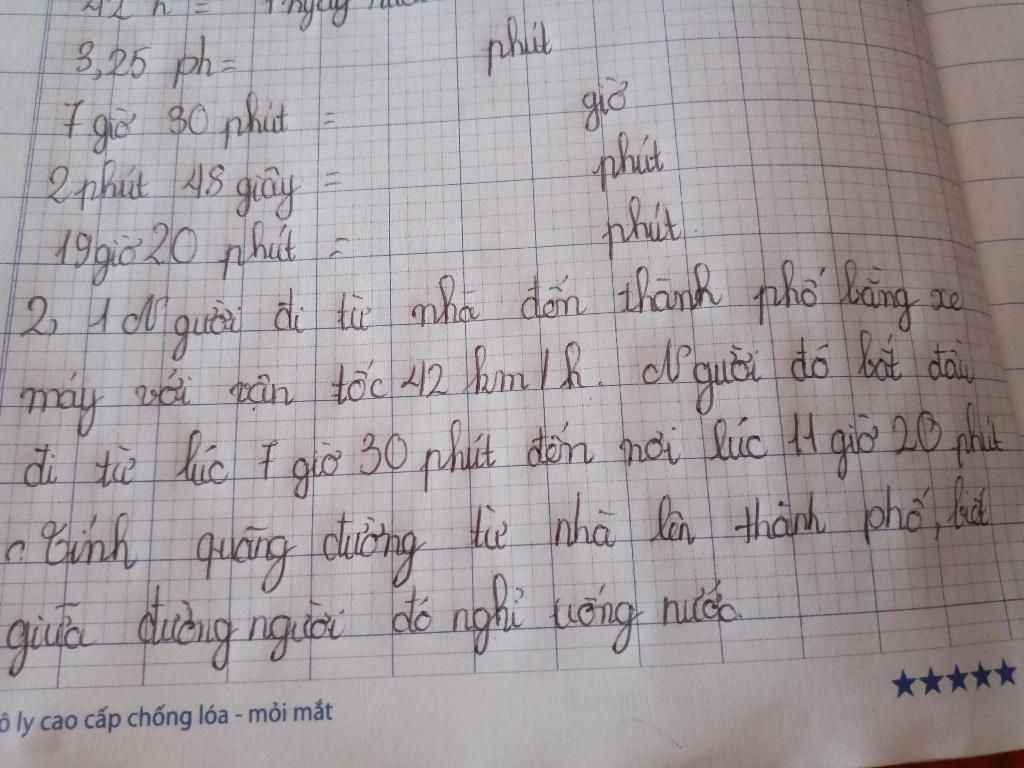 42 h = 1 ngày
3,25 ph = phút
7 giờ 30 phút = giờ
2 phút 48 giây = phút
19 giờ 20 phút = phút.
2, 1 Người đi từ nhà đến thành phố bằng xe
máy với vận tốc 42 km/h. Người đó bắt đầu
đi từ lúc 7 giờ 30 phút đến nơi lúc 11 giờ 20 phút
Tính quãng đường từ nhà lên thành phố, biết
giữa đường người đó nghỉ uống nước.
ô ly cao cấp chống lóa - mỏi mắt